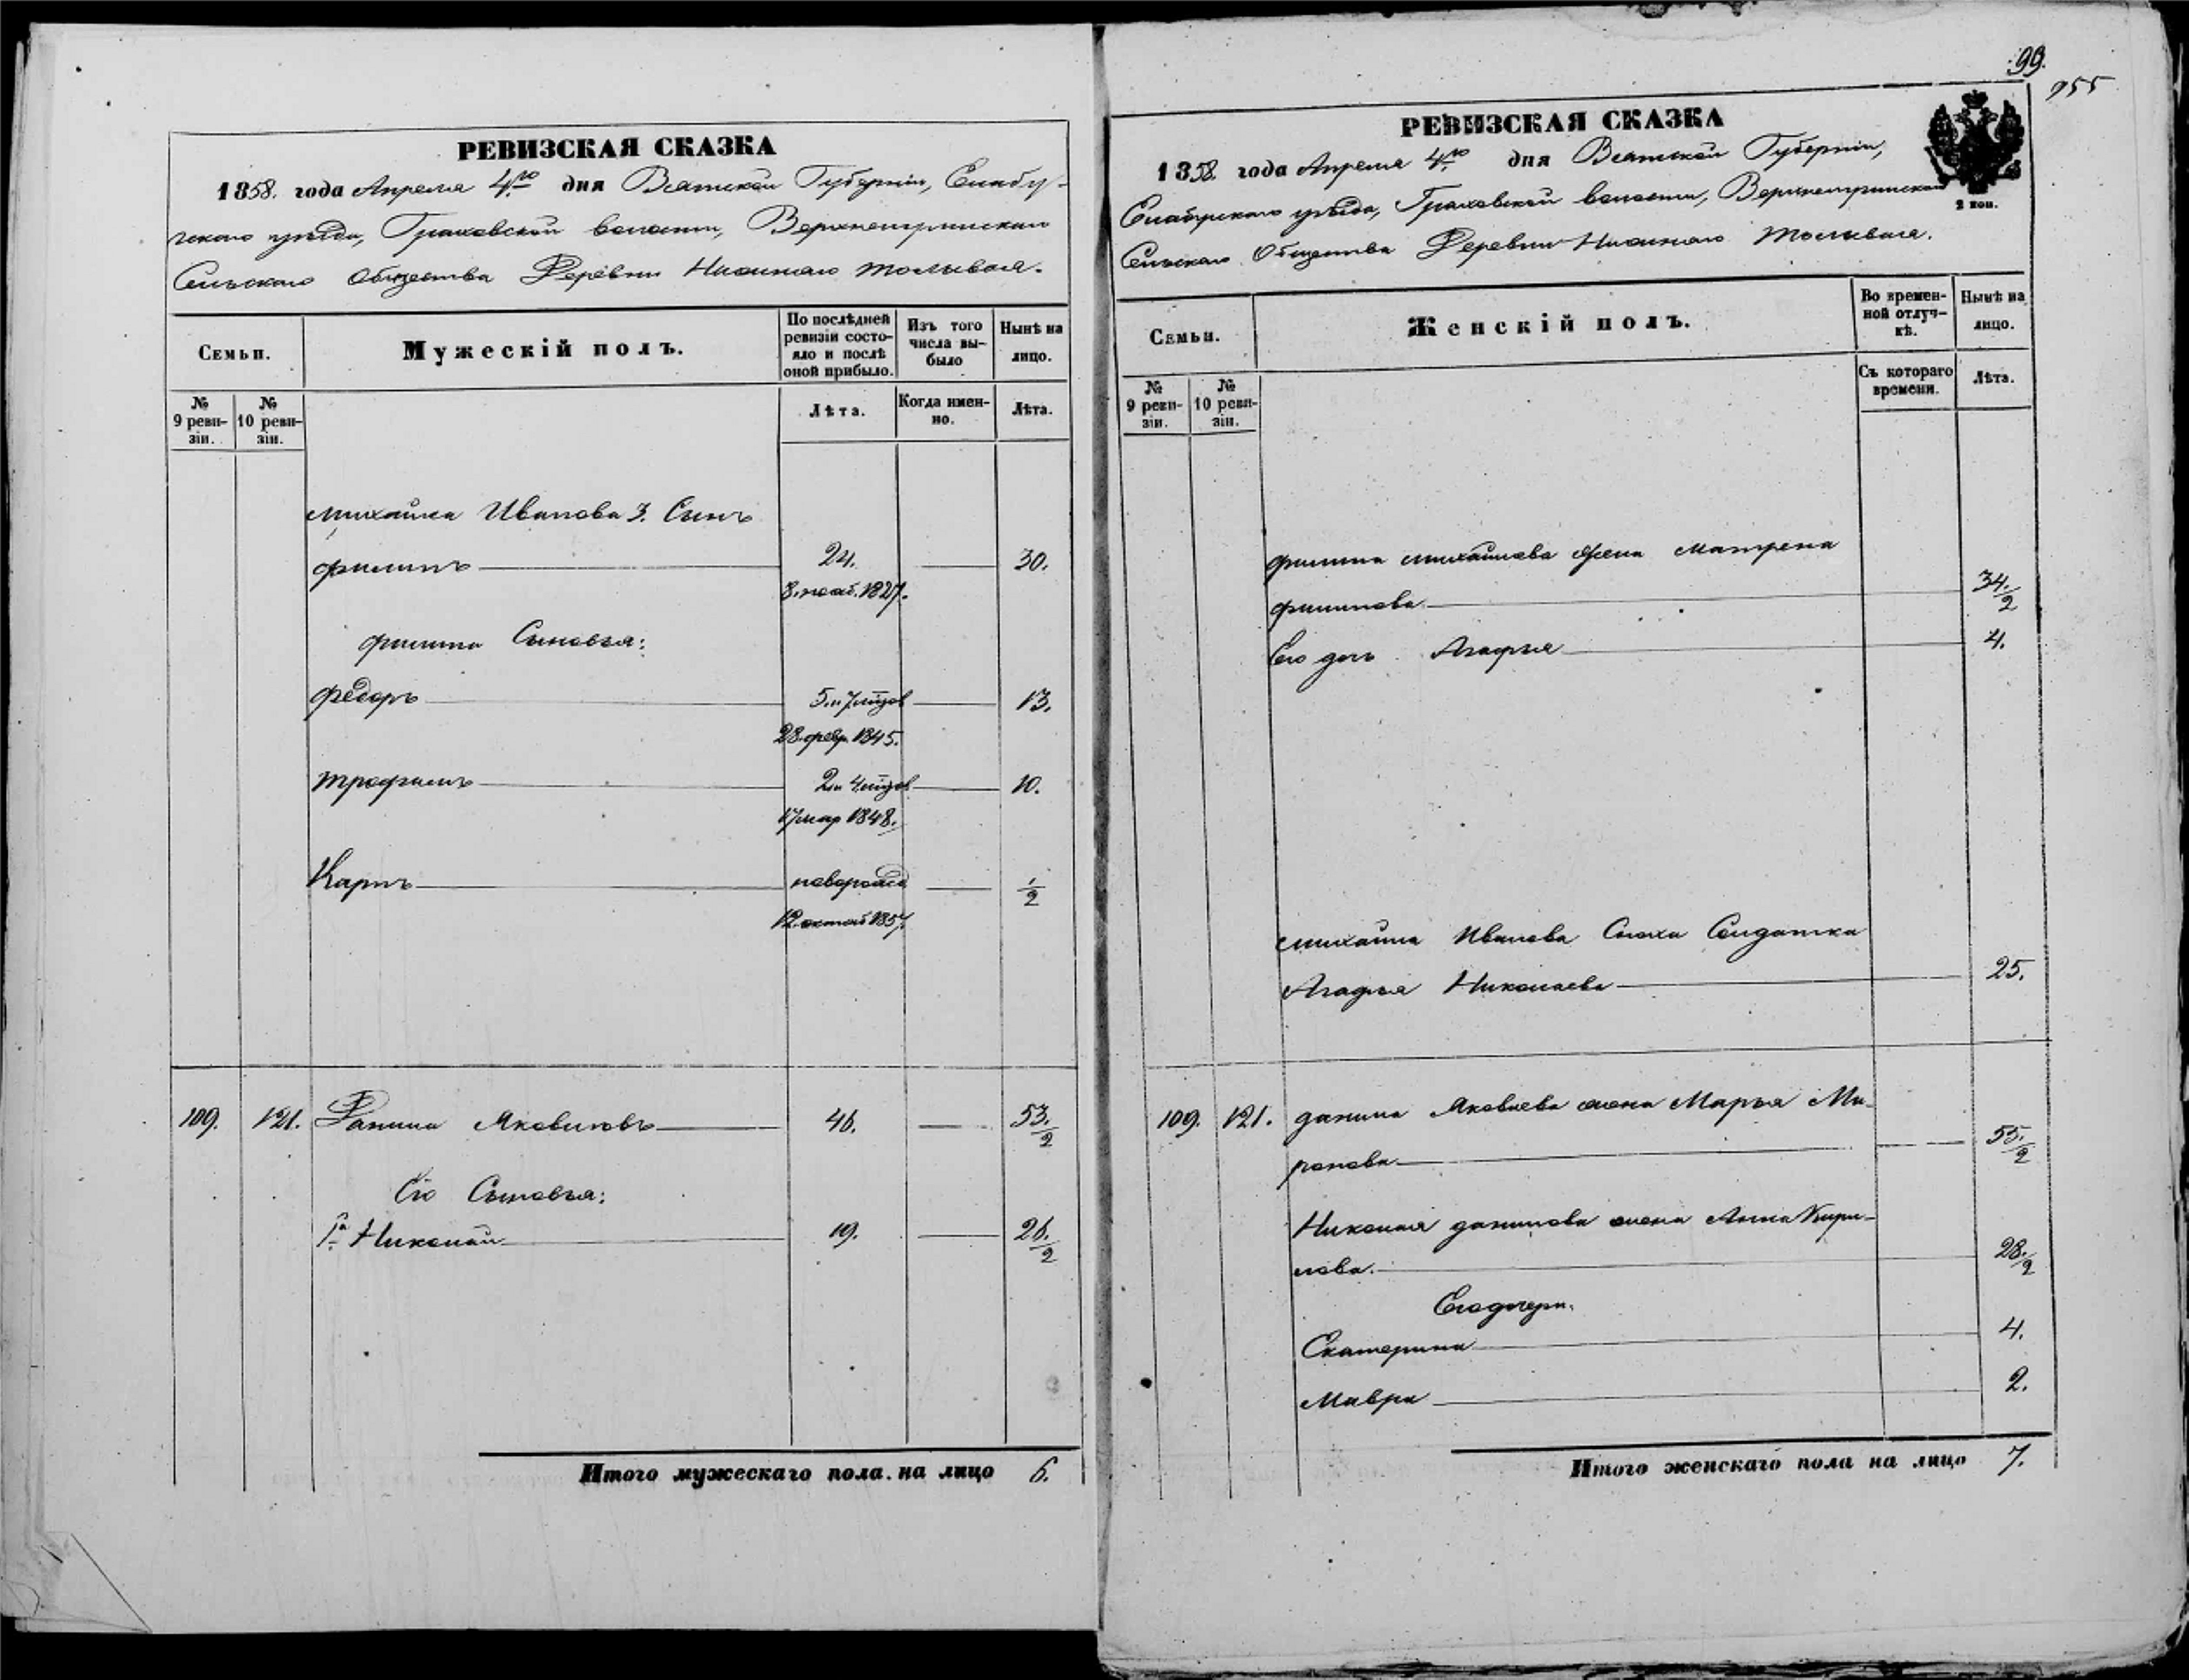 РЕВИЗСКАЯ СКАЗКА
1858. года Апреля 4го дня Вятской Губерніи, Елабу-
гскаго уѣзда, Граховской волости, Верхнеигринскаго
Сельскаго Общества Деревни Нижняго
Семьи.
Мужескій полъ.
По послѣдней ревизіи состо-
яло и послѣ оной прибыло.
Изъ того числа вы-
было
Нынѣ на лицо.
№ 9 реви-
зіи.
№ 10 реви-
зіи.
Лѣта.
Когда имен-
но.
Лѣта.
Михайла Иванова 3. Сынъ
Филипъ 24. 30.
8. нояб. 1827.
Филипа Сыновья:
Федоръ 5. и 7 мцов 13.
28. февр. 1845.
Трофимъ 2. и 4. мцов 10.
17 мар 1848.
Карпъ новорожд 1/2
12 октяб 1857.
109. 121. Данила Яковлевъ 46. 53./2
Его Сыновья:
1й Николай 19. 26./2
Итого мужескаго пола на лицо 6.
99.
955
РЕВИЗСКАЯ СКАЗКА
1858. года Апреля 4го дня Вятской Губерніи,
2 коп.
Елабугскаго уѣзда, Граховской волости, Верхнеигринскаго
Сельскаго Общества Деревни Нижняго
Семьи.
Женскій полъ.
Во времен-
ной отлуч-
кѣ.
Нынѣ на лицо.
№ 9 реви-
зіи.
№ 10 реви-
зіи.
Съ котораго времени.
Лѣта.
Филипа Михайлова жена Матрена
Филипова 34./2
Его дочь Агафья 4.
Михайла Иванова Сноха Солдатка
Агафья Николаева 25.
109. 121. Данила Яковлева жена Марья Ми-
ронова 55./2
Николая Данилова жена Анна Кири-
лова. 28./2
Его дочери:
Екатерина 4.
Мавра 2.
Итого женскаго пола на лицо 7.